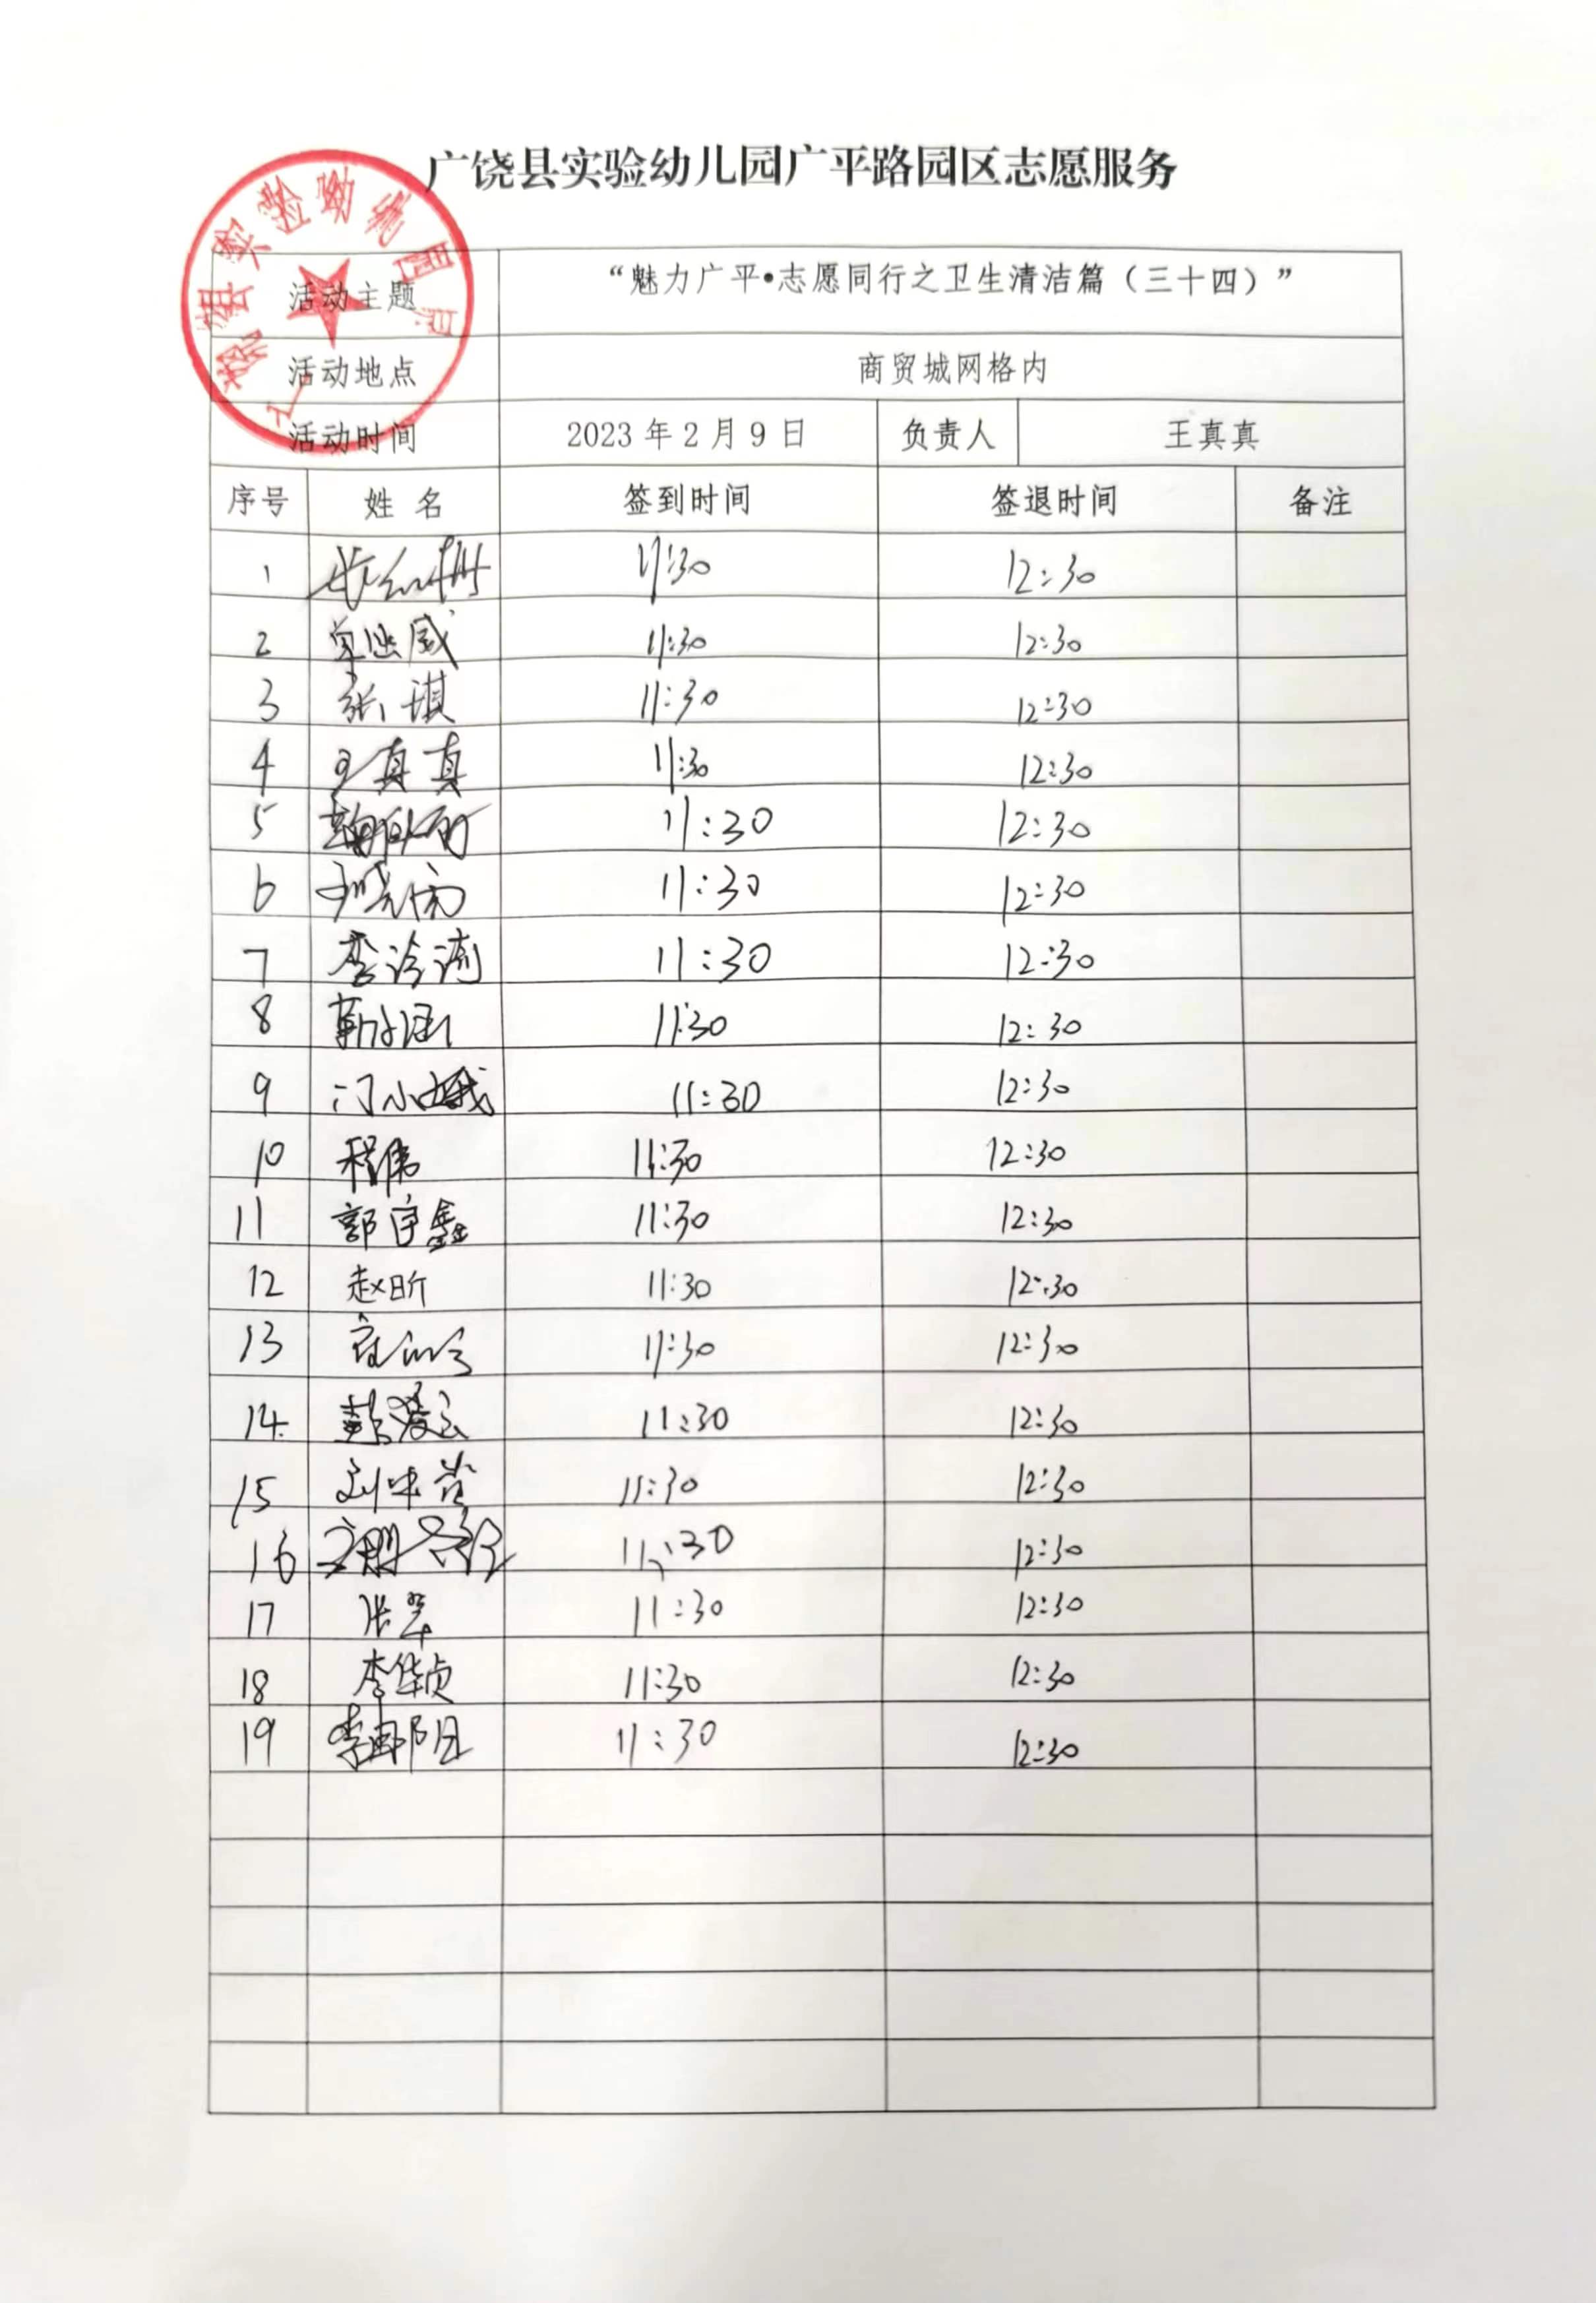 广饶县实验幼儿园广平路园区志愿服务
广饶县实验幼儿园
活动主题 “魅力广平•志愿同行之卫生清洁篇（三十四）”
活动地点 商贸城网格内
活动时间 2023 年 2 月 9 日 负责人 王真真
序号 姓 名 签到时间 签退时间 备注
1 11:30 12:30
2 11:30 12:30
3 张琪 11:30 12:30
4 王真真 11:30 12:30
5 11:30 12:30
6 11:30 12:30
7 11:30 12:30
8 11:30 12:30
9 门小娥 11:30 12:30
10 程伟 11:30 12:30
11 郭宇鑫 11:30 12:30
12 赵昕 11:30 12:30
13 11:30 12:30
14. 11:30 12:30
15 11:30 12:30
16 11:30 12:30
17 张翠 11:30 12:30
18 李华贞 11:30 12:30
19 11:30 12:30